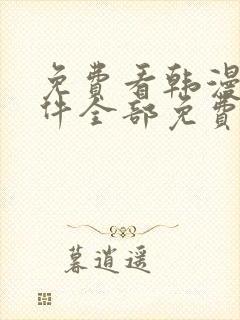 免费看韩漫
件全部免费
暮逍遥